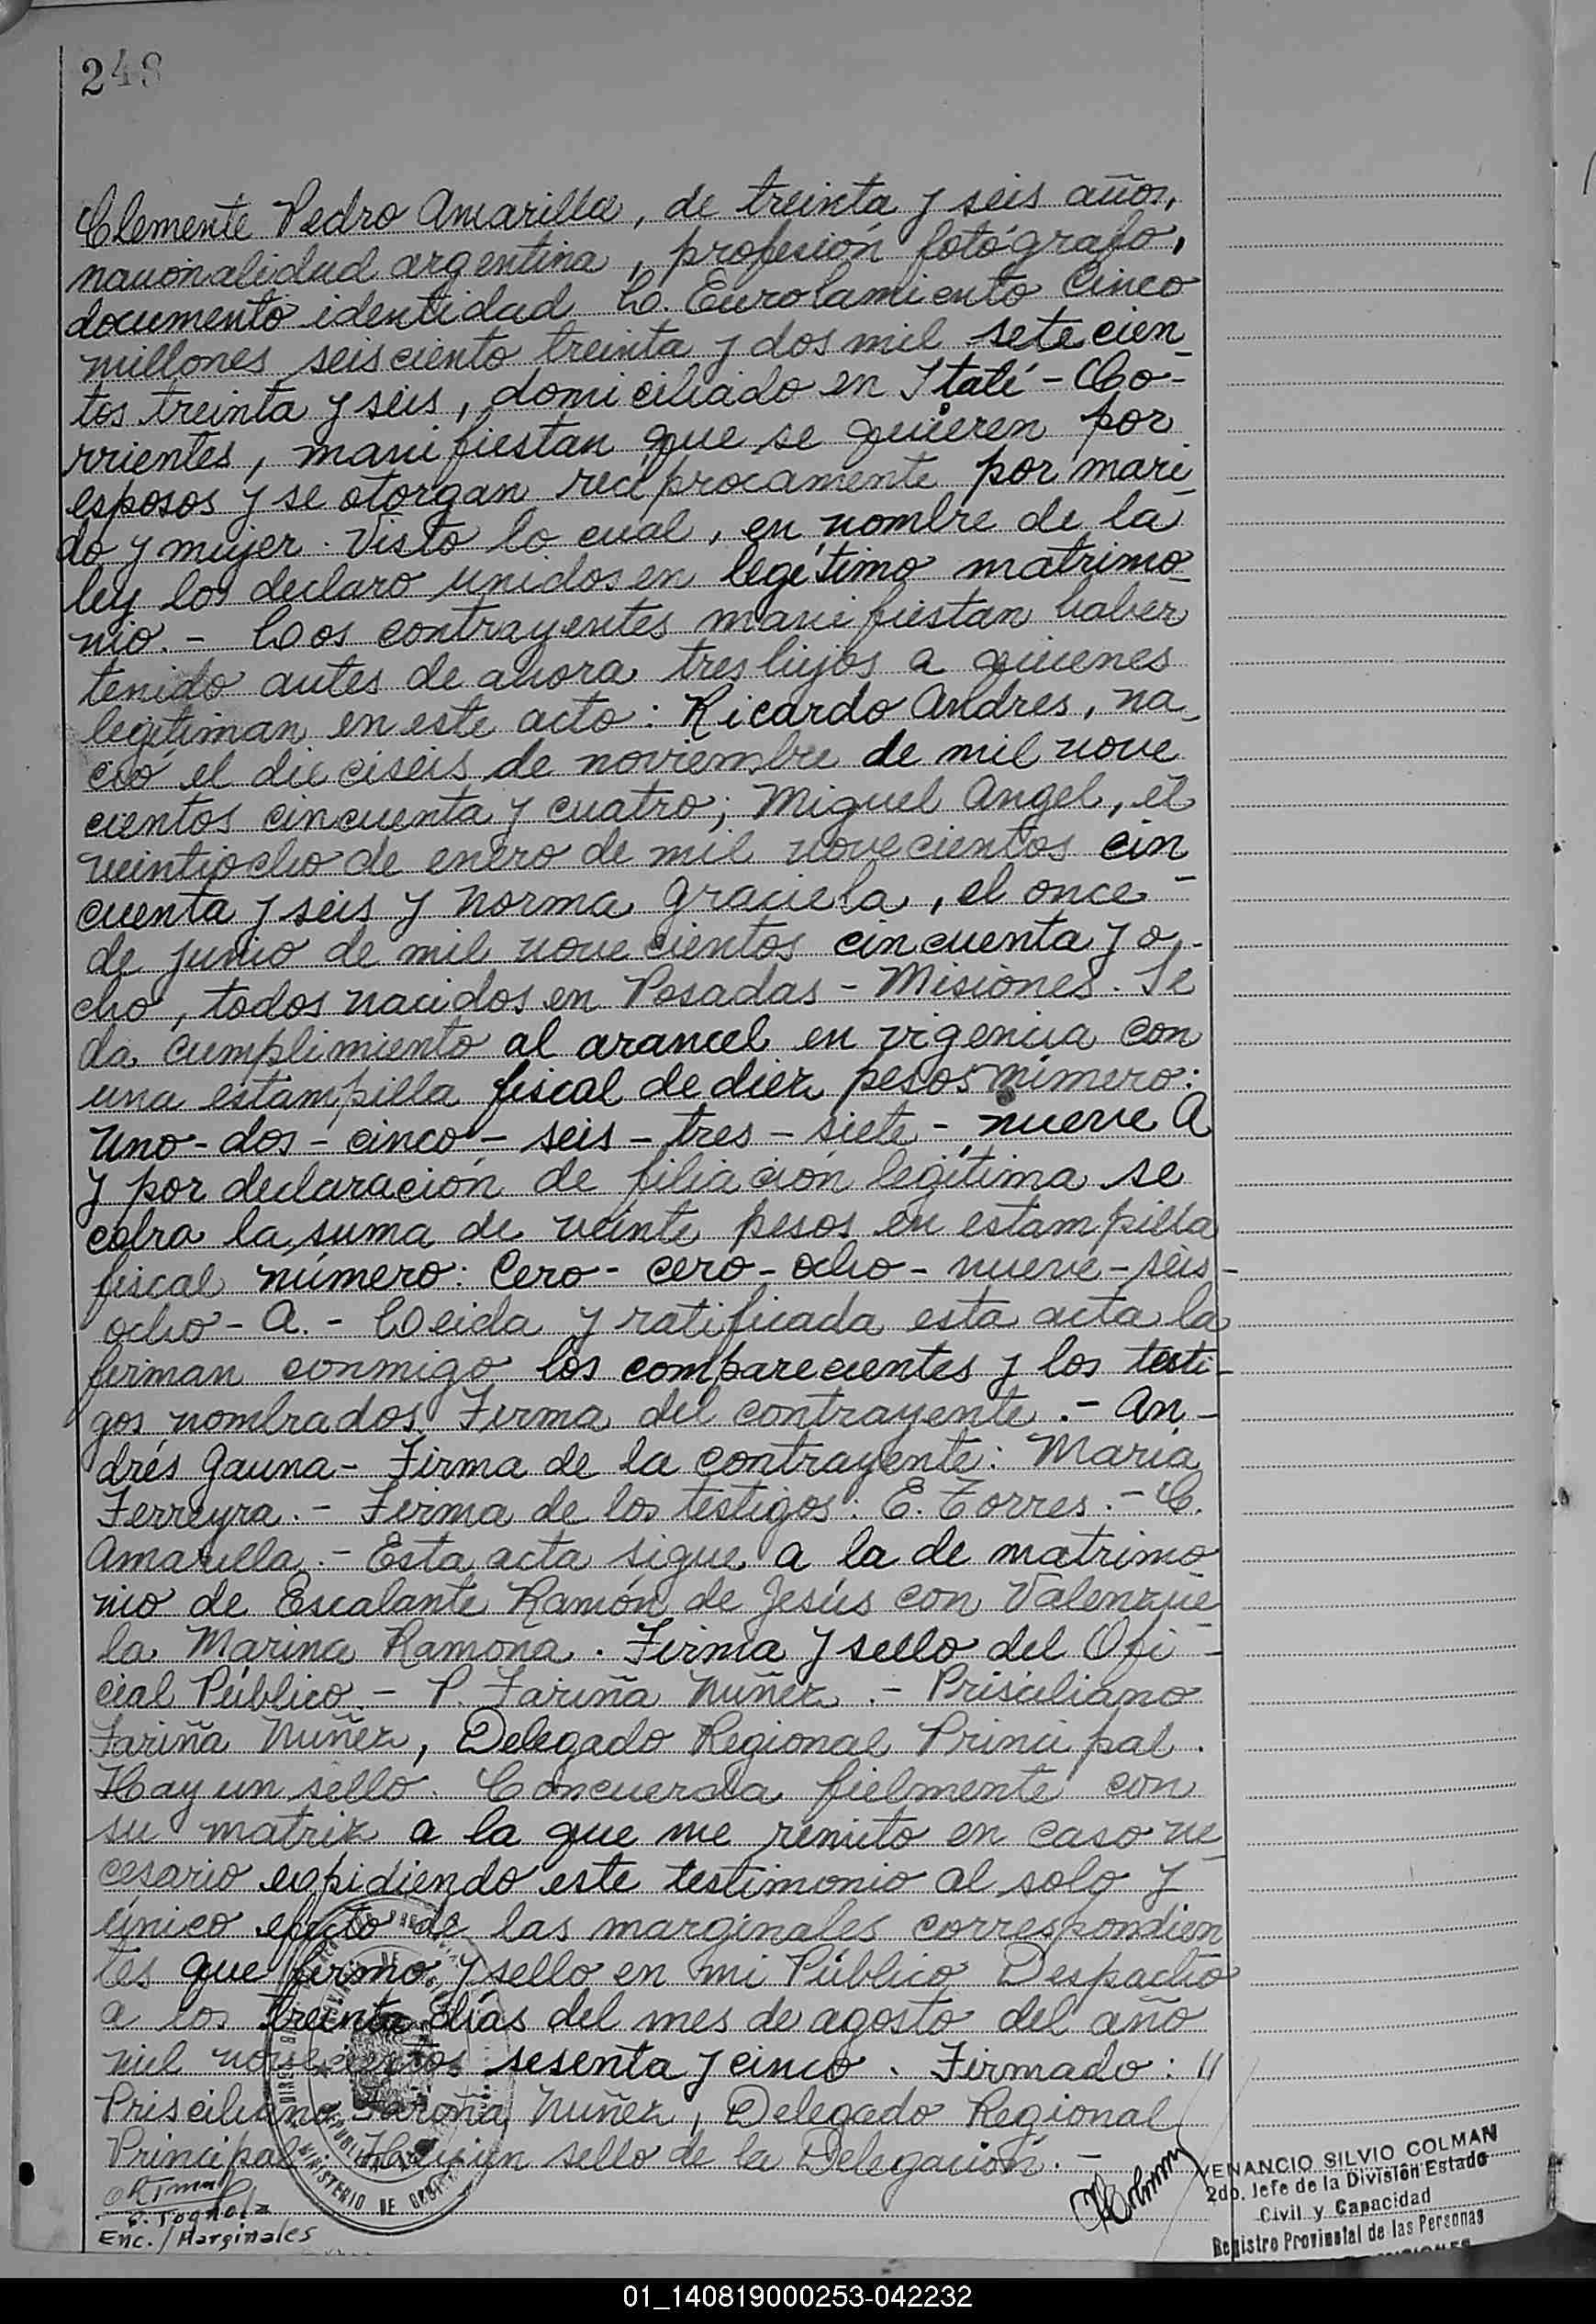 248
Clemente Pedro Amarilla, de treinta y seis años,
nacionalidad argentina, profesión fotógrafo,
documento identidad L. Enrolamiento Cinco
millones seisciento treinta y dos mil setecien_
tos treinta y seis, domiciliado en Itatí - Co-
rrientes, manifiestan que se quieren por
esposos y se otorgan recíprocamente por mari_
do y mujer. Visto lo cual, en nombre de la
ley los declaro unidos en legítimo matrimo_
nio. - Los contrayentes manifiestan haber
tenido antes de ahora tres hijos a quienes
legitiman en este acto: Ricardo Andres, na_
ció el dieciséis de noviembre de mil nove
cientos cincuenta y cuatro; Miguel Angel, el
veintiocho de enero de mil novecientos cin_
cuenta y seis y Norma Graciela, el once
de junio de mil novecientos cincuenta y o_
cho, todos nacidos en Posadas - Misiones. Se
da cumplimiento al arancel en vigencia con
una estampilla fiscal de diez pesos número:
uno - dos - cinco - seis - tres - siete - nueve A
y por declaración de filiación legítima se
cobra la suma de veinte pesos en estampilla
fiscal número: Cero - cero - ocho - nueve - seis -
ocho - A. - Leida y ratificada esta acta la
firman conmigo los comparecientes y los testi_
gos nombrados. Firma del contrayente. - An_
drés Gauna - Firma de la contrayente: María
Ferreyra. - Firma de los testigos: E. Torres. - C.
Amarilla. - Esta acta sigue a la de matrimo_
nio de Escalante Ramón de Jesús con Valenzue_
la Marina Ramona. Firma y sello del Ofi_
cial Público - P. Fariña Nuñez. - Prisciliano
Fariña Nuñez, Delegado Regional Principal.
Hay un sello. Concuerda fielmente con
su matriz a la que me remito en caso ne_
cesario expidiendo este testimonio al solo y
único efecto de las marginales correspondien_
tes que firmo y sello en mi Público Despacho
a los treinta días del mes de agosto del año
mil novecientos sesenta y cinco. Firmado: //
Prisciliano Fariña Nuñez, Delegado Regional
Principal. Hay un sello de la Delegación. -
Enc./Marginales
MINISTERIO DE
VENANCIO SILVIO COLMAN
2do. Jefe de la División Estado
Civil y Capacidad
Registro Provincial de las Personas
01_140819000253-042232